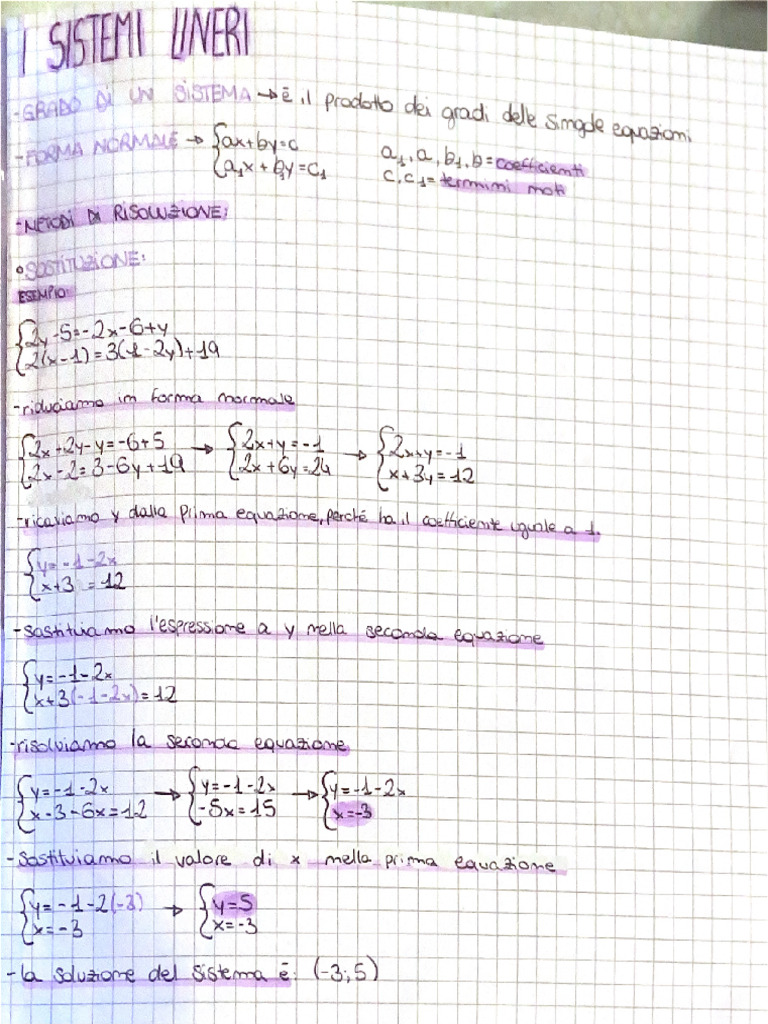 I SISTEMI LINERI
-GRADO DI UN SISTEMA → è il prodotto dei gradi delle singole equazioni.
-FORMA NORMALE → {ax+by=c
{a₁x+b₁y=c₁
a₁, a, b₁, b = coefficienti
c, c₁ = termini noti
-METODI DI RISOLUZIONE:
•SOSTITUZIONE:
ESEMPIO:
{2y-5=-2x-6+y
{2(x-1)=3(1-2y)+19
-riduciamo in forma normale
{2x+2y-y=-6+5 → {2x+y=-1 → {2x+y=-1
{2x-2=3-6y+19 {2x+6y=24 {x+3y=12
-ricaviamo y dalla prima equazione, perché ha il coefficiente uguale a 1.
{y=-1-2x
{x+3 =12
-sostituiamo l'espressione a y nella seconda equazione
{y=-1-2x
{x+3(-1-2x)=12
-risolviamo la seconda equazione
{y=-1-2x → {y=-1-2x → {y=-1-2x
{x-3-6x=12 {-5x=15 {x=-3
-Sostituiamo il valore di x nella prima equazione
{y=-1-2(-3) → {y=5
{x=-3 {x=-3
-la soluzione del sistema è: (-3;5)